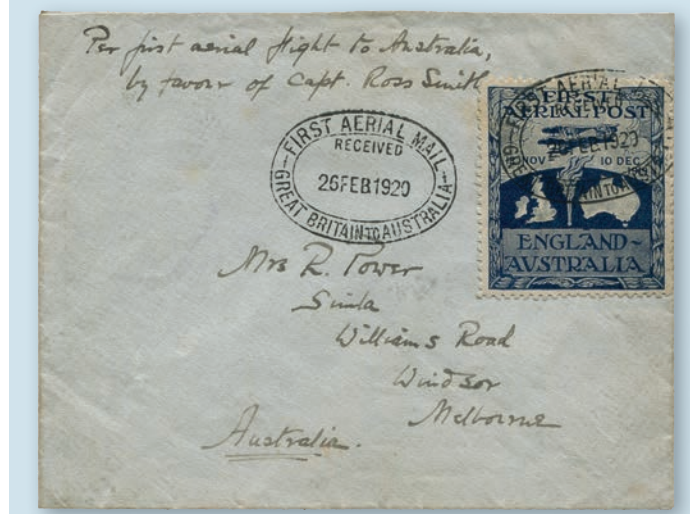 Per first aerial flight to Australia,
by favour of Capt. Ross Smith
FIRST AERIAL MAIL
RECEIVED
26FEB1920
GREAT BRITAIN TO AUSTRALIA
FIRST AERIAL
FIRST
AERIAL POST
26FEB1920
NOV 10 DEC
BRITAIN TO
ENGLAND~
AVSTRALIA
Mrs R. Power
Simla
Williams Road
Windsor
Melbourne
Australia.